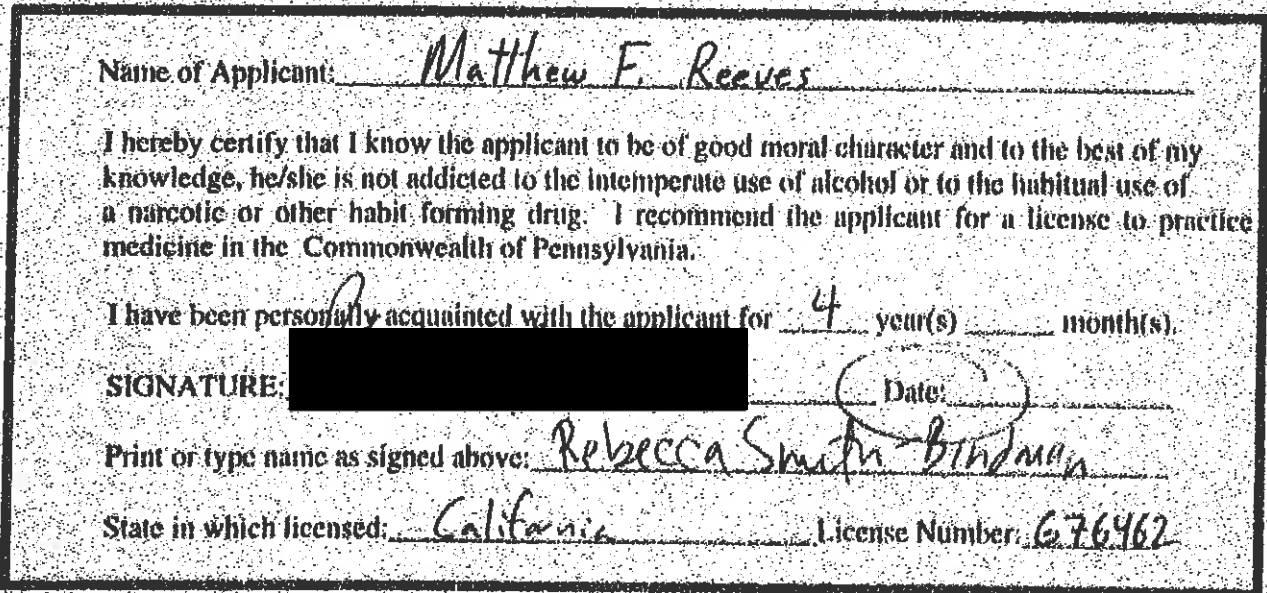 Name of Applicant: Matthew F. Reeves
I hereby certify that I know the applicant to be of good moral character and to the best of my
knowledge, he/she is not addicted to the intemperate use of alcohol or to the habitual use of
a narcotic or other habit forming drug. I recommend the applicant for a license to practice
medicine in the Commonwealth of Pennsylvania.
I have been personally acquainted with the applicant for 4 year(s) month(s).
SIGNATURE: Date:
Print or type name as signed above: Rebecca Smith-Bindman
State in which licensed: California License Number: G76462